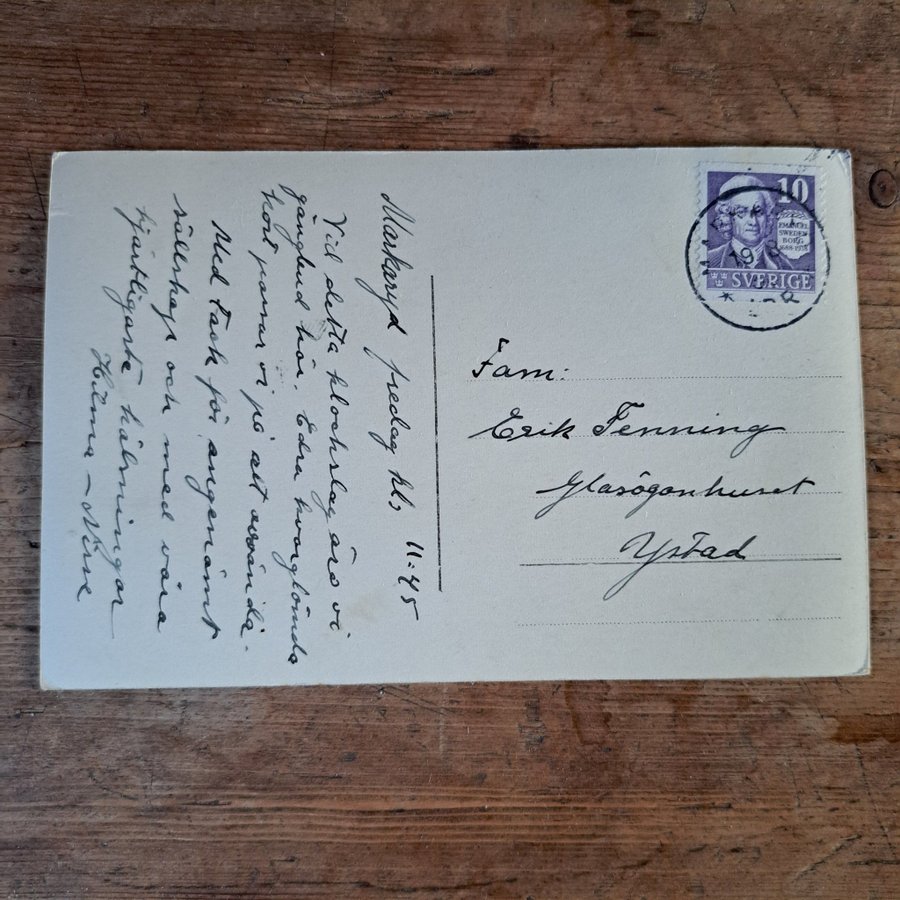 Markaryd fredag kl. 11.45
Vid detta klockslag äro vi
gånghud här. Edra kvarglömda
kort passar vi på att avsända.
Med tack för angenämt
sällskap och med våra
hjärtligaste hälsningar
Hilma – Nisse
10
EMANUEL
SWEDEN-
BORG
1688-1938
SVERIGE
Fam:
Erik Fenning
Glasögonhuset
Ystad